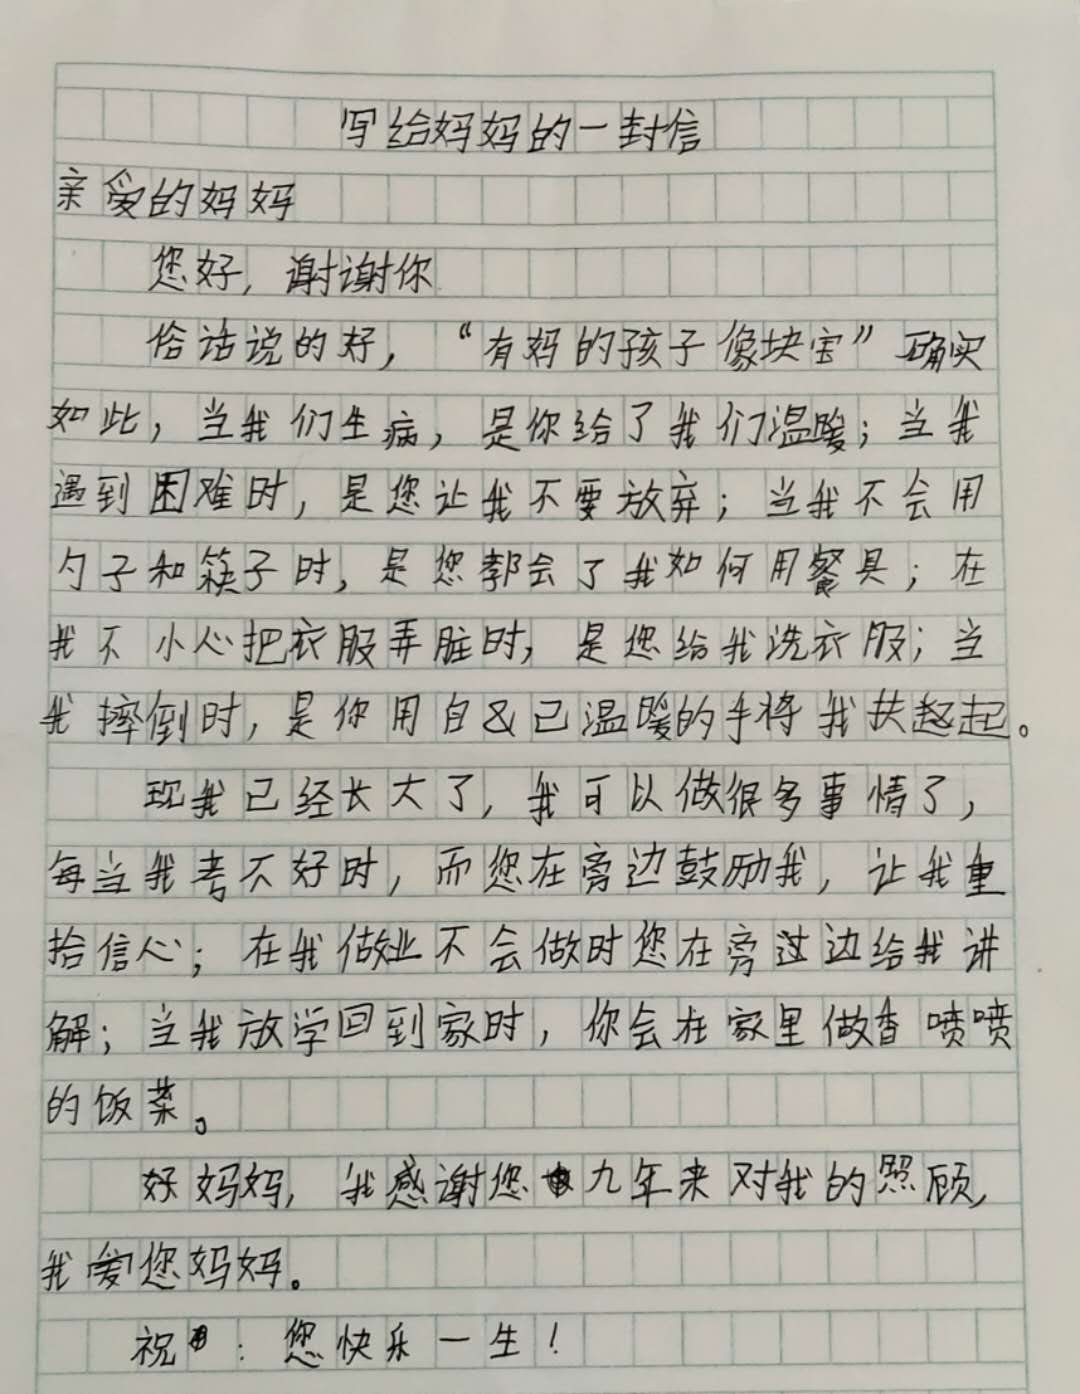 写给妈妈的一封信
亲爱的妈妈
您好，谢谢你
俗话说的好，“有妈的孩子像块宝”确实
如此，当我们生病，是你给了我们温暖；当我
遇到困难时，是您让我不要放弃；当我不会用
勺子和筷子时，是您教会了我如何用餐具；在
我不小心把衣服弄脏时，是您给我洗衣服；当
我摔倒时，是你用自己温暖的手将我扶起。
现我已经长大了，我可以做很多事情了，
每当我考不好时，而您在旁边鼓励我，让我重
拾信心；在我做业不会做时您在旁边给我讲
解；当我放学回到家时，你会在家里做香喷喷
的饭菜。
好妈妈，我感谢您九年来对我的照顾，
我爱您妈妈。
祝：您快乐一生！